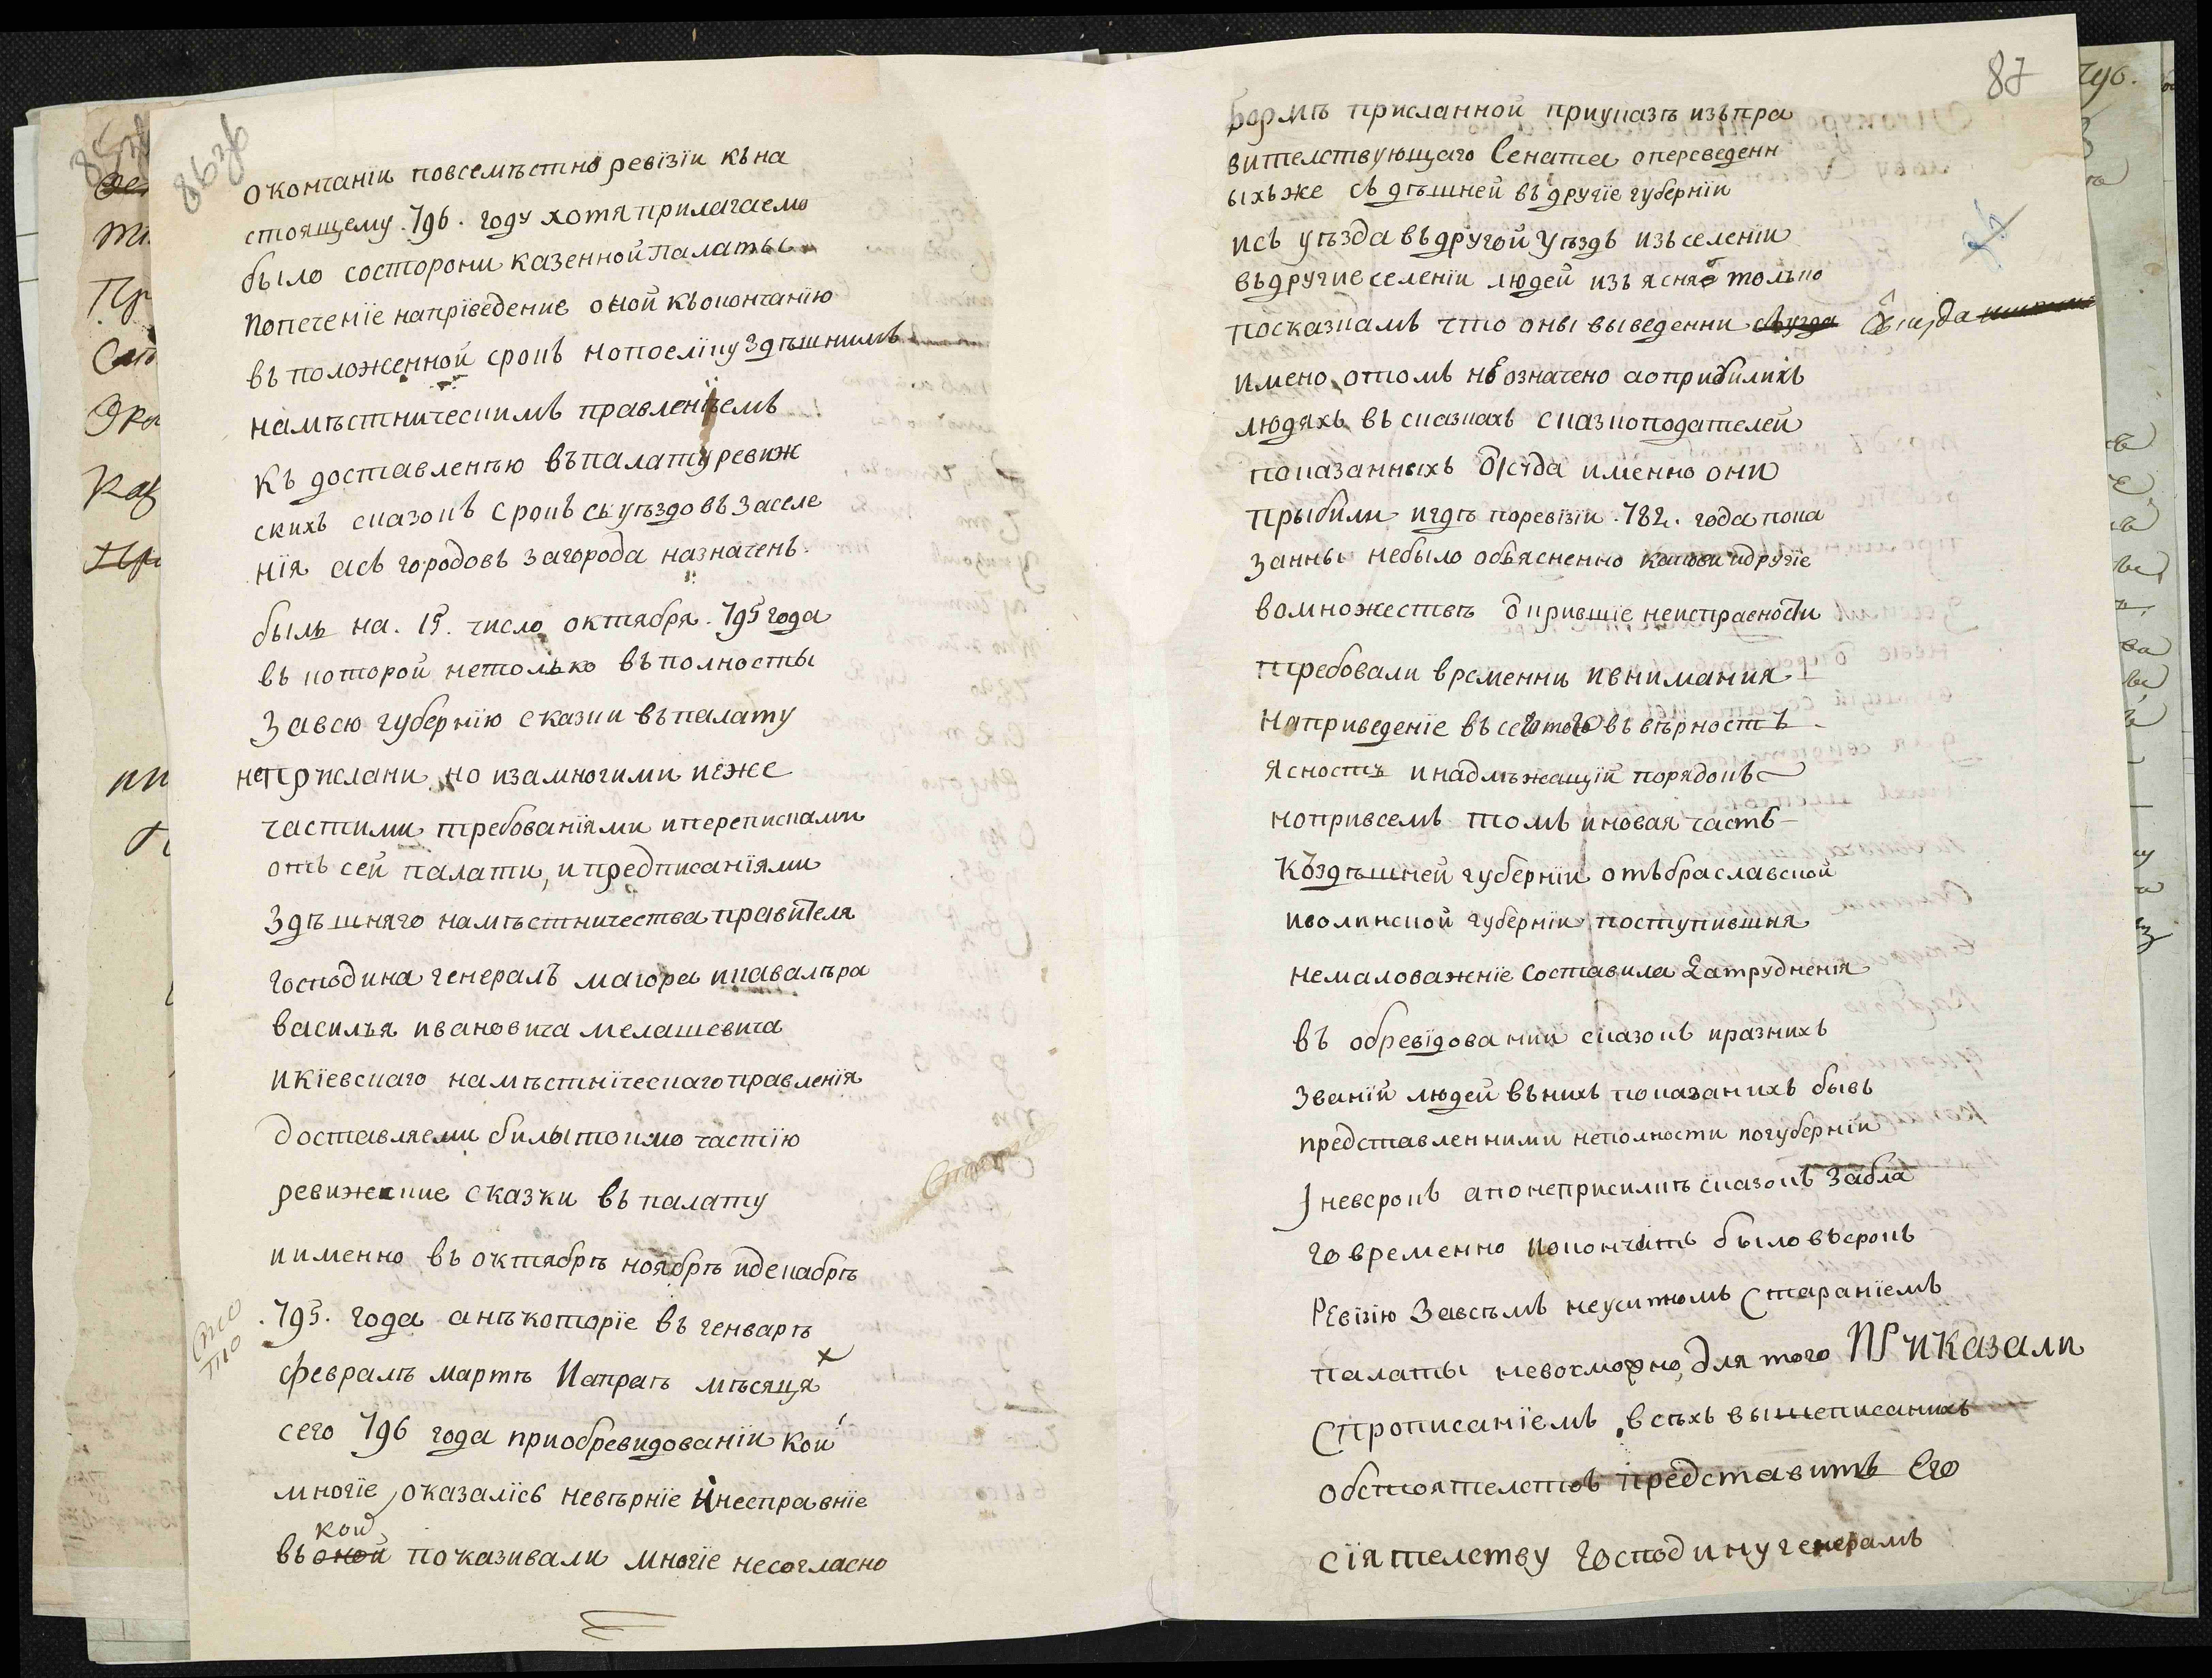 86зв
окончаніи повсемѣстнo ревізіи къ на
стоящему .796. году хотя прилагаемо
было состорони казенной палаты
попеченіе напріведение оной къокончанію
въ положенной срокъ нопоелику здѣшнимъ
намѣстническимъ правленіемъ
къ доставленью въпалату ревиж
скихъ сказокъ срокъ съ уѣздовъ заселе
нія асъ городовъ загорода назначенъ
былъ на .15. число октября .795 года
въ которой нетолько въполносты
завсю губернію сказки въпалату
неприслани но изамногими иеже
частими требованіями ипереписками
отъ сей палати, и предписаніями
здѣшняго намѣстничества правителя
господина генералъ маіора икавалѣра
василья ивановича мелашевича
икіевскаго намѣстніческаго правленія
доставляеми били токмо частію
ревижские сказки въ палату
и именно въ октябрѣ ноябрѣ идекабрѣ
.795. года анѣкоторіе въ генварѣ
февралѣ мартѣ Иапрѣ мѣсяця
сего 796 года приобревидованіи кои
многіе оказалісь невѣрніе инесправніе
кои
въ оной показивали многіе несогласно
87
формѣ присланной приуказѣ изъпра
вителствующаго Сената опереведенн
ыхъже съ дѣшней въ другіе губерніи
исъ уѣзда въдругой уѣздъ изъ селеніи
въдругие селеніи людей изъясняе только
посказкамъ что оны выведенни
имено отомъ не означено аоприбилихъ
людяхъ въ сказкахъ сказкоподателей
показанныхъ откуда именно они
прыбили игдѣ поревізіи .782. года пока
занны небыло объясненно каковы идругіе
вомножествѣ открившіе неисправности
требовали временны ивнимания
Наприведеніе въсего того въ вѣрность
ясность инадлѣжащій порядокъ
нопривсемъ томъ иновая часть
къздѣшней губерніи отъбраславской
иволинской губерніи поступившия
немаловажніе составила затрудненія
въ обревідованіи сказокъ иразнихъ
званій людей въ нихъ показанихъ бывъ
представленними неполности погуберніи
Іневсрокъ апонеприсилкѣ сказокъ забла
говременно покончить было въсрокъ
Ревізію завсѣмъ неуситномъ стараніемъ
палаты невозможно, для того Приказали
спрописаніемъ всѣхъ вышеписанихъ
обстоятелствъ представить Его
сіятелству господину генералъ